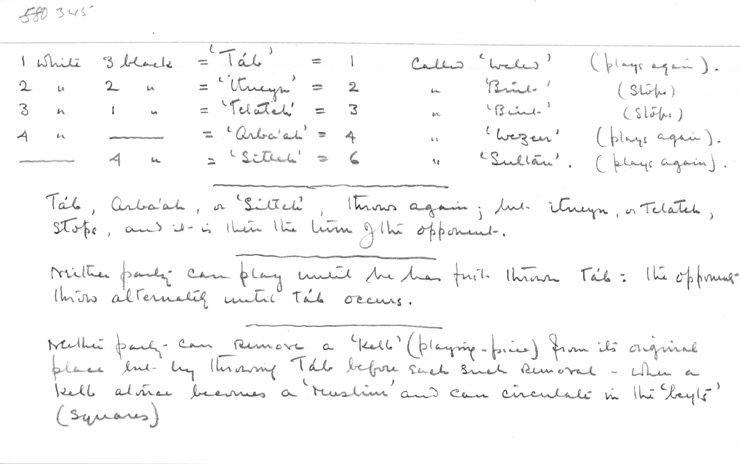 580 345
1 white 3 black = 'Táb' = 1 Called 'weled' (plays again).
2 " 2 " = 'Itneyn' = 2 " 'Bint' (Stops)
3 " 1 " = 'Telateh' = 3 " 'Bint' (Stops)
4 " —— = 'Arba'ah' = 4 " 'Wezeer' (plays again).
—— 4 " = 'Sitteh' = 6 " 'Sultán'. (plays again).
Táb, Arba'ah, or 'Sitteh', throws again; but itneyn, or Telateh,
Stops, and it is then the turn of the opponent.
Neither party can play until he has first thrown Táb: the opponents
throw alternately until Táb occurs.
Neither party can remove a 'Kelb' (playing-piece) from its original
place but by throwing Táb before each such removal - when a
Kelb at once becomes a 'Muslim' and can circulate in the 'beyts'
(Squares)